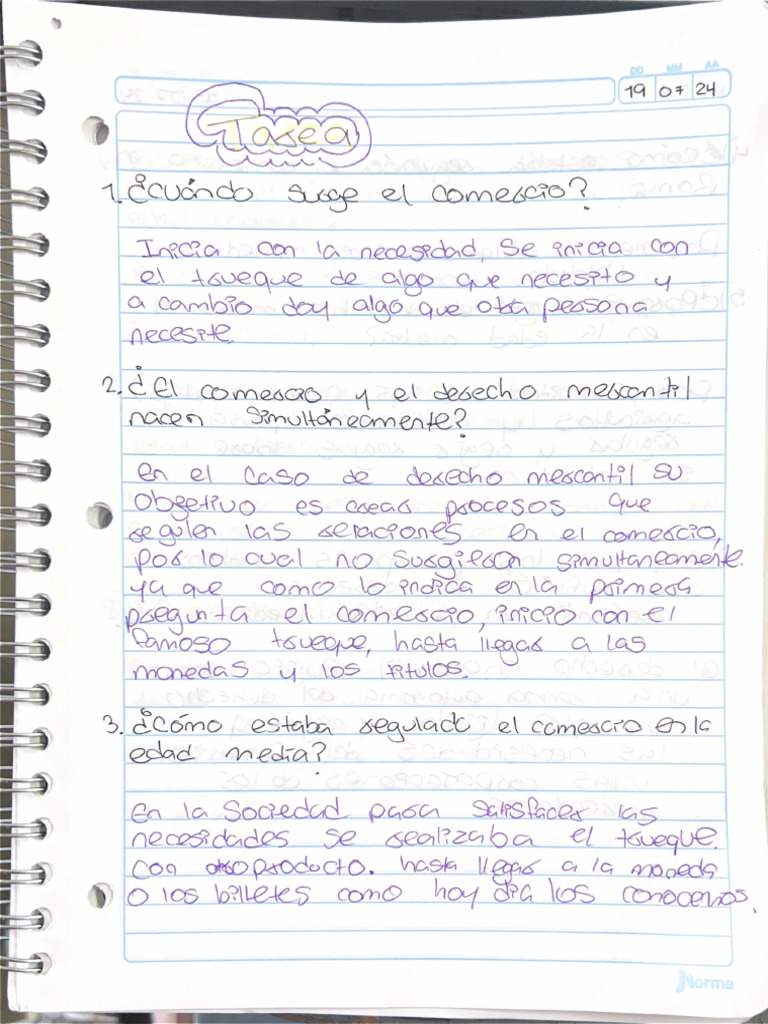 DD MM AA
19 07 24
Tarea
1. ¿Cuándo surge el comercio?
Inicia con la necesidad, Se inicia con
el trueque de algo que necesito y
a cambio doy algo que otra persona
necesite.
2. ¿El comercio y el derecho mercantil
nacen simultáneamente?
en el caso de derecho mercantil su
Objetivo es crear procesos que
regulen las relaciones en el comercio,
por lo cual no surgieron simultaneamente.
ya que como lo indica en la primera
pregunta el comercio, inicio con el
famoso trueque, hasta llegar a las
monedas y los titulos.
3. ¿Cómo estaba regulado el comercio en la
edad media?
En la Sociedad para satisfacer las
necesidades se realizaba el trueque.
con otro producto. hasta llegar a la moneda
o los billetes como hoy dia los conocemos.
Norma